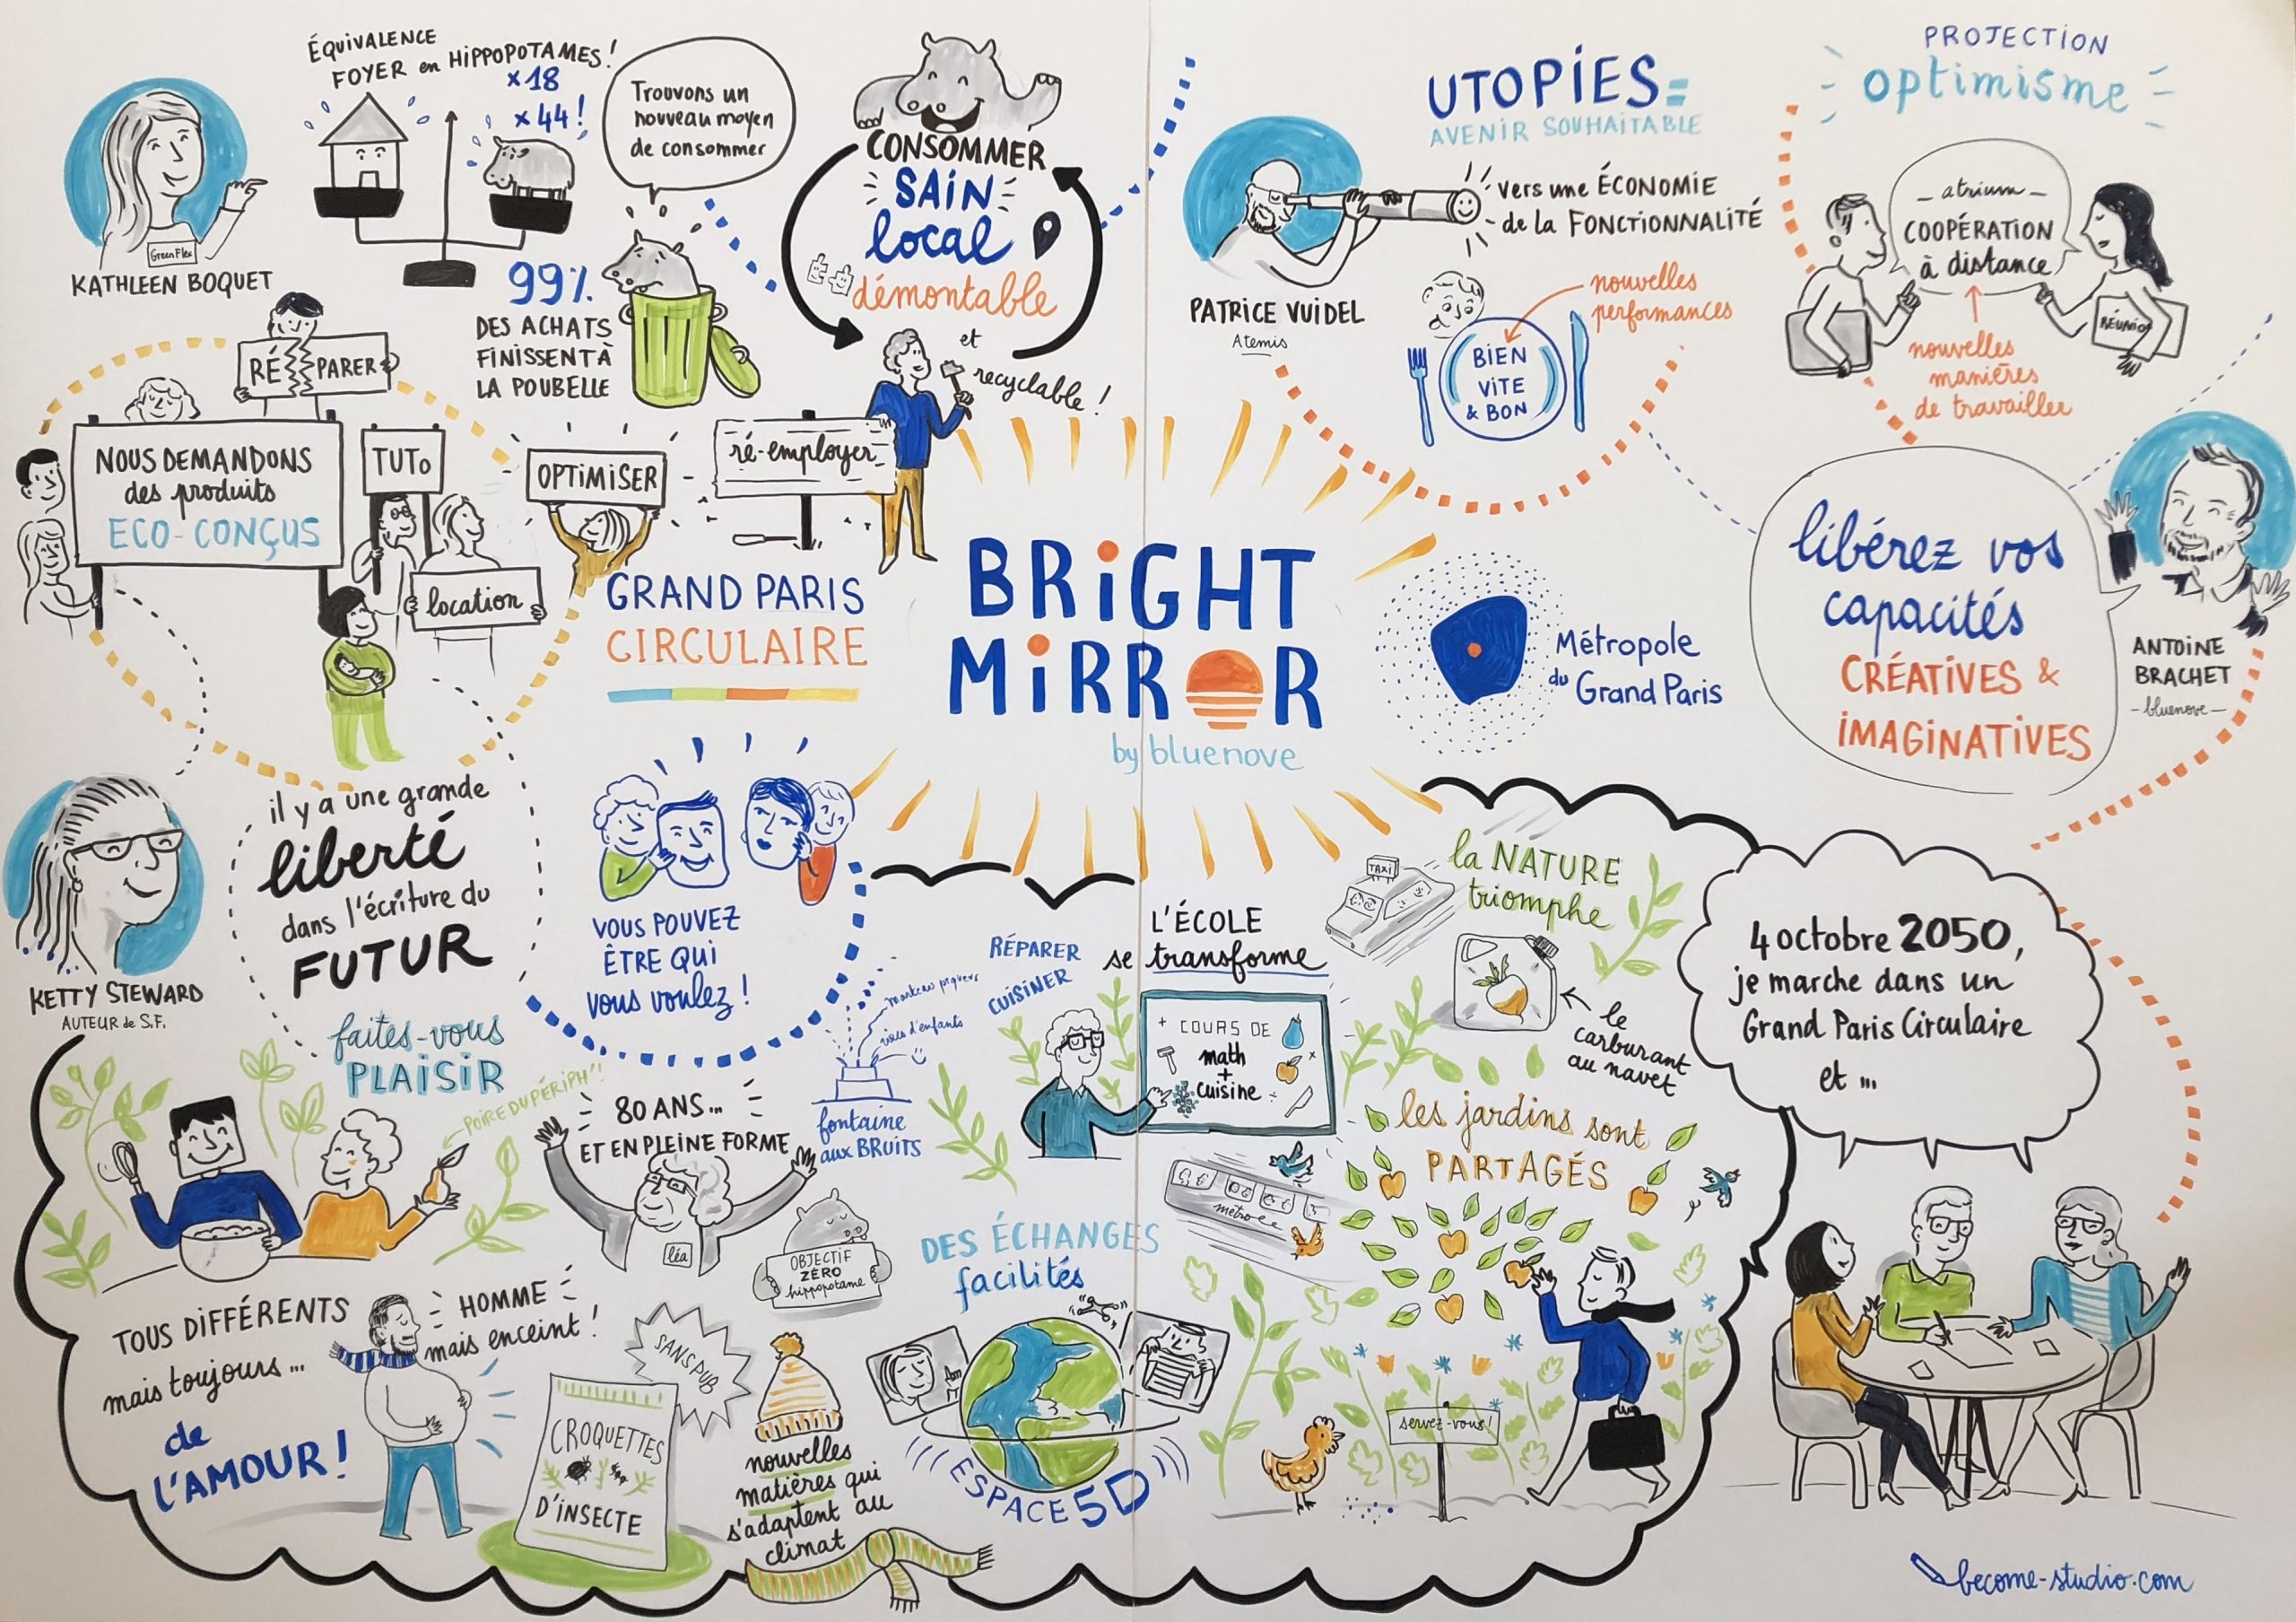 ÉQUIVALENCE
FOYER en HIPPOPOTAMES !
x18
x44 !
GreenFlex
KATHLEEN BOQUET
Trouvons un
nouveau moyen
de consommer
99%
DES ACHATS
FINISSENT À
LA POUBELLE
CONSOMMER
SAIN
local
démontable
et
recyclable !
RÉPARER
NOUS DEMANDONS
des produits
ECO-CONÇUS
TUTO
location
OPTIMISER
ré-employer
UTOPIES =
AVENIR SOUHAITABLE
vers une ÉCONOMIE
de la FONCTIONNALITÉ
PATRICE VUIDEL
Atemis
nouvelles
performances
BIEN
VITE
& BON
PROJECTION
optimisme
- atrium -
COOPÉRATION
à distance
RÉUNION
nouvelles
manières
de travailler
libérez vos
capacités
CRÉATIVES &
IMAGINATIVES
ANTOINE
BRACHET
- bluenove -
GRAND PARIS
CIRCULAIRE
BRIGHT
MIRROR
by bluenove
Métropole
du Grand Paris
KETTY STEWARD
AUTEUR de S.F.
il y a une grande
liberté
dans l'écriture du
FUTUR
faites-vous
PLAISIR
VOUS POUVEZ
ÊTRE QUI
vous voulez !
4 octobre 2050,
je marche dans un
Grand Paris Circulaire
et ...
POIRE DU PÉRIPH' !
80 ANS...
ET EN PLEINE FORME
léa
voix d'enfants
fontaine
aux BRUITS
RÉPARER
CUISINER
L'ÉCOLE
se transforme
+ COURS DE
math
+
cuisine
TAXI
la NATURE
triomphe
le
carburant
au navet
les jardins sont
PARTAGÉS
métro
OBJECTIF
ZÉRO
hippopotame
DES ÉCHANGES
facilités
ESPACE 5D
TOUS DIFFÉRENTS
mais toujours ...
de
L'AMOUR !
HOMME
mais enceint !
SANS PUB
CROQUETTES
D'INSECTE
nouvelles
matières qui
s'adaptent au
climat
servez-vous !
become-studio.com